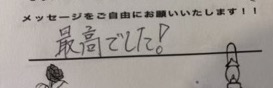 メッセージをご自由にお願いいたします！！
最高でした！